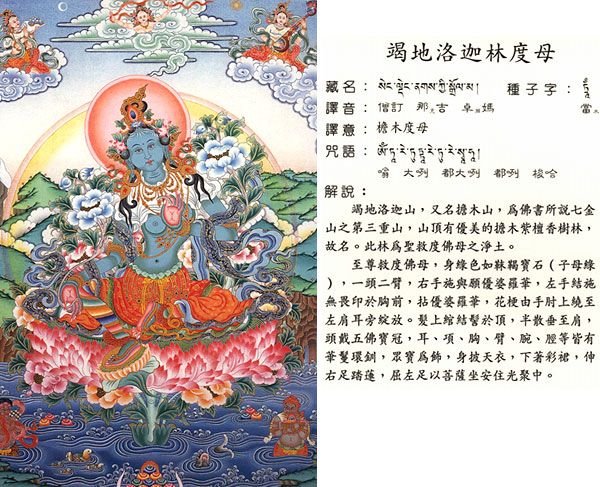 竭地洛迦林度母
藏名：སེང་ལྡེང་ནགས་ཀྱི་སྒྲོལ་མ། 種子字：
譯音：僧訂 那克吉 卓 媽 當
譯意：檐木度母
咒語：ༀ་ཏཱ་རེ་ཏུཏྟཱ་རེ་ཏུ་རེ་སྭཱ་ཧཱ།
嗡 大咧 都大咧 都咧 梭哈
解說：
竭地洛迦山，又名擔木山，爲佛書所說七金
山之第三重山，山頂有優美的擔木紫檀香樹林，
故名。此林爲聖救度佛母之淨土。
至尊救度佛母，身綠色如靺鞨寶石（子母綠
），一頭二臂，右手施與願優婆羅華，左手結施
無畏印於胸前，拈優婆羅華，花梗由手肘上繞至
左肩耳旁綻放。髮上綰結髻於頂，半散垂至肩，
頭戴五佛寶冠，耳、項、胸、臂、腕、脛等皆有
華鬘環釧，眾寶爲飾，身披天衣，下著彩裙，伸
右足踏蓮，屈左足以菩薩坐安住光聚中。